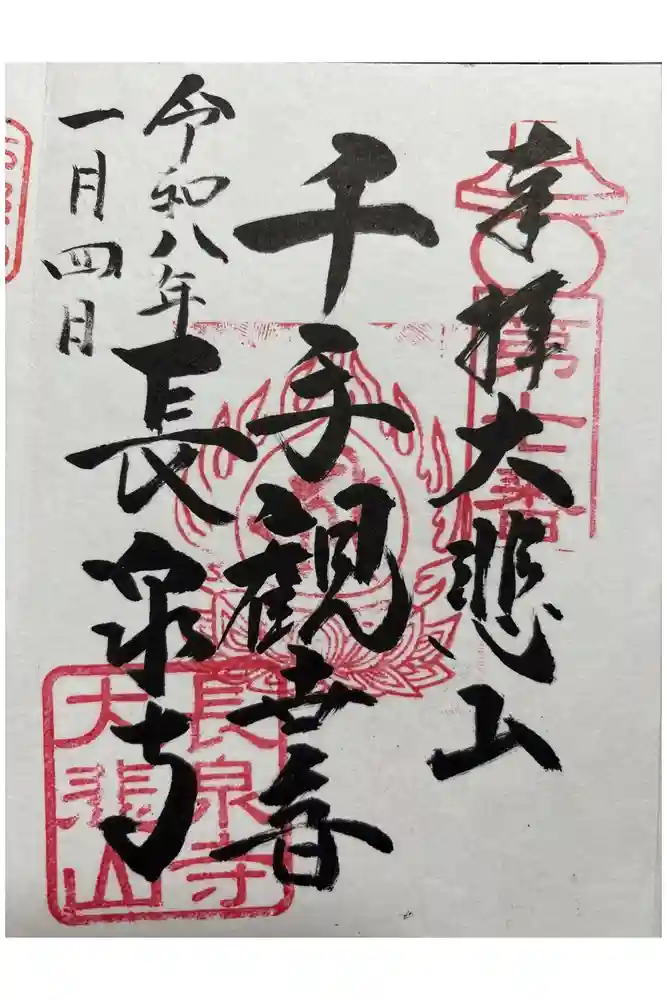 奉拝 大悲山
千手観世音
令和八年
一月四日
長泉寺
長泉寺
大悲山